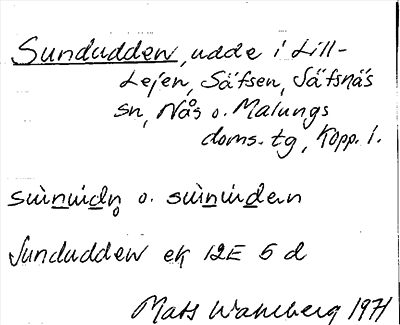 Sundudden, udde i Lill-
Lejen, Säfsen, Säfsnäs
sn, Nås o. Malungs
doms. tg, Kopp. l.
sùnnúdn̥ o. sùnnúdən
Sundudden ek 12E 5 d
Mats Wahlberg 1971